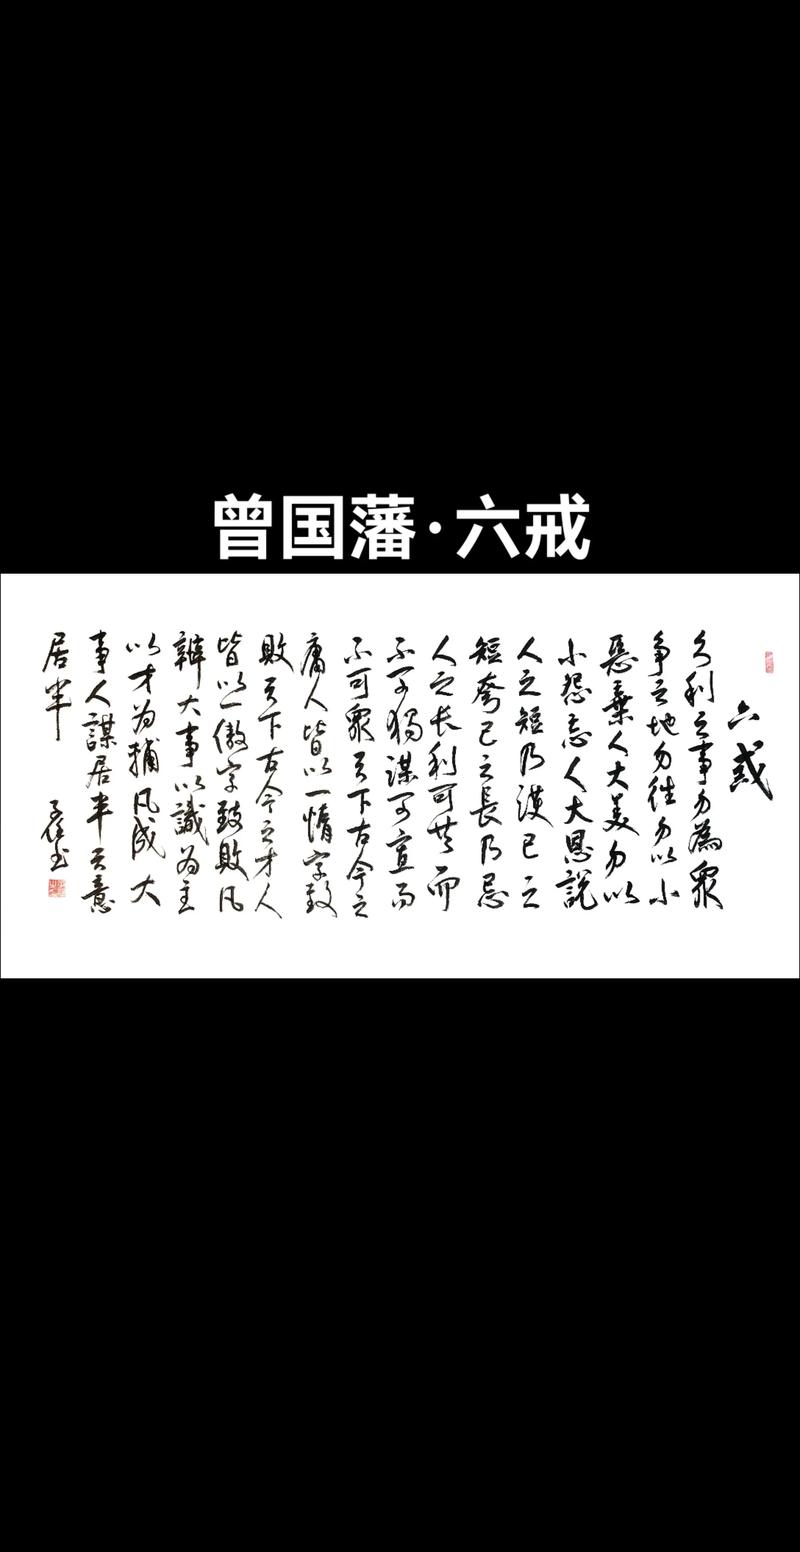 曾国藩·六戒
六戒
久利之事勿為眾
争之地勿往勿以小
惡棄人大美勿以
小怨忘人大恩說
人之短乃護己之
短夸己之長乃忌
人之长利可共而
不可獨謀可寡而
不可眾天下古今之
庸人皆以一惰字致
敗天下古今之才人
皆以一傲字致敗凡
辦大事以識為主
以才为輔凡成大
事人謀居半天意
居半